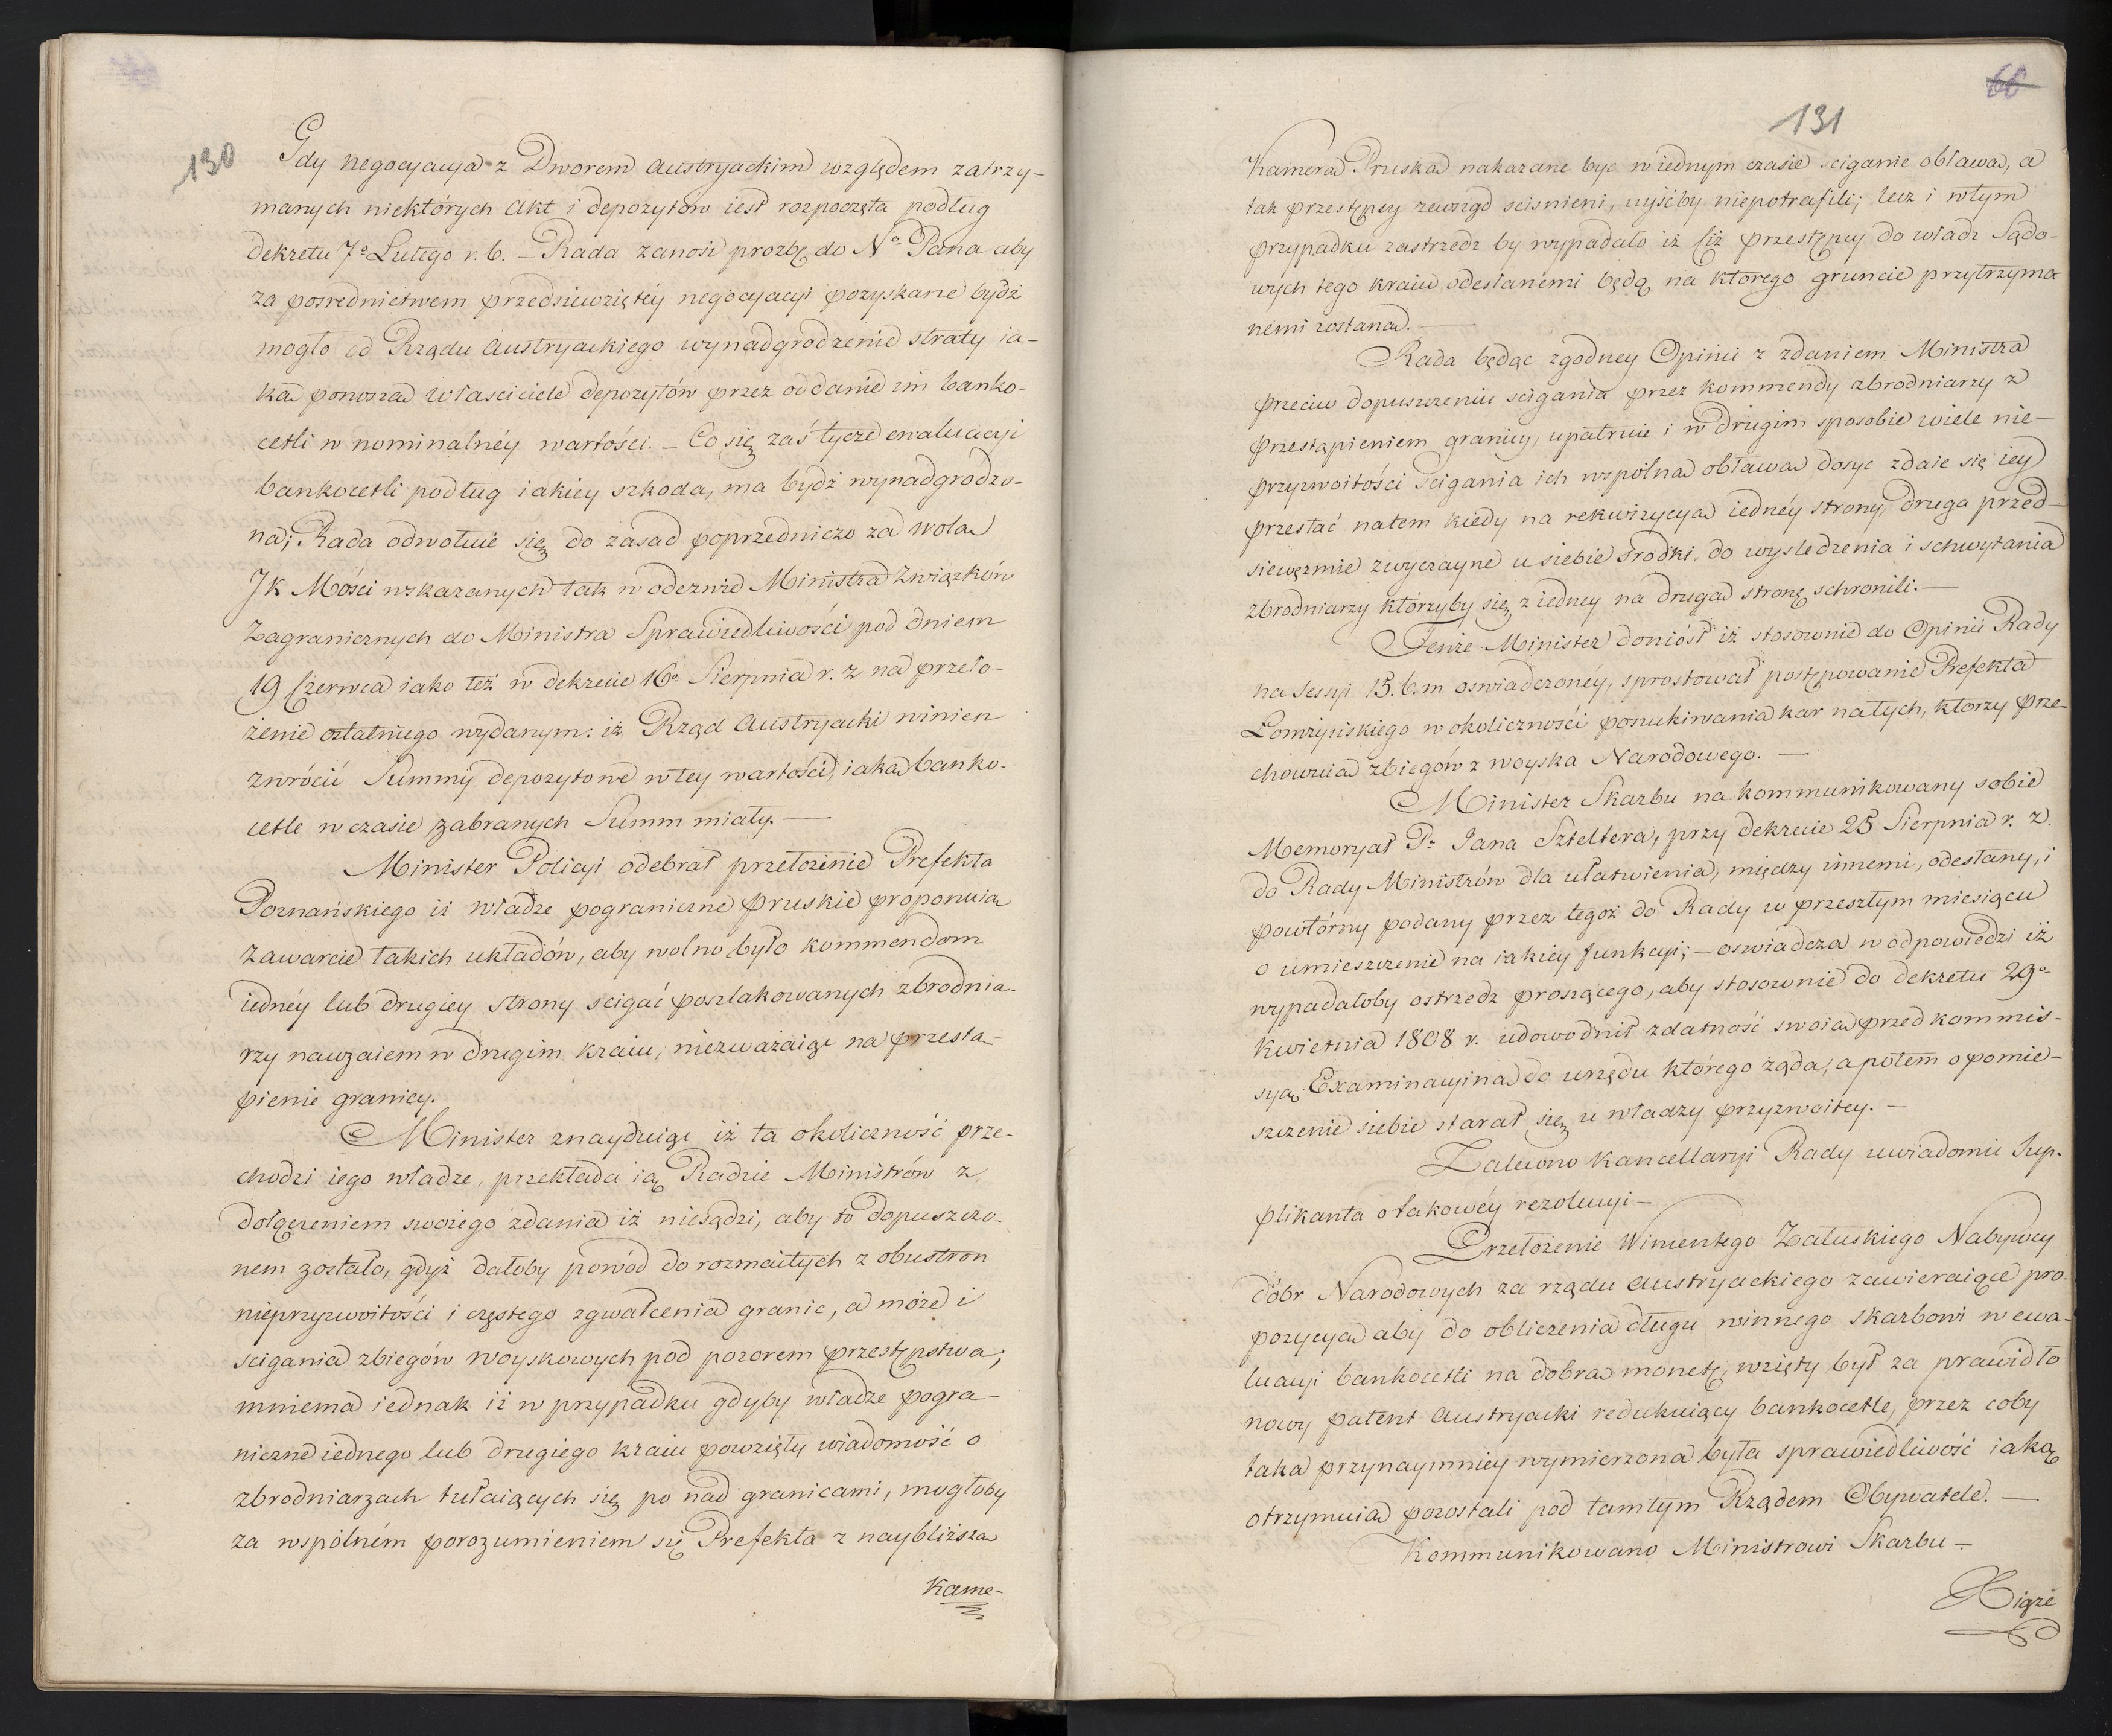 130
Gdy negocyacya z Dworem Austryackim względem zatrzy-
manych niektórych Akt i depozytow iest rozpoczęta podług
dekretu 7º Lutego r. b. – Rada zanosi prozbę do Nº Pana aby
za posrednictwem przedsiewziętéy negocyacyi pozyskane bydź
mogło od Rządu Austryackiego wynadgrodzenie straty ia-
ką ponoszą własciciele depozytów przez oddanie im banko-
cetli w nominalnéy wartości. – Co się zaś tycze ewaluacyi
bankocetli podług iakiey szkoda, ma bydź wynadgrodzo-
na; Rada odwołuie się do zasad poprzedniczo za wolą
JK Mości wskazanych tak w odezwie Ministra Związków
Zagranicznych do Ministra Sprawiedliwości pod dniem
19 Czerwca iako też w dekrecie 16º Sierpnia r. z na przeło-
żenie ostatniego wydanym: iż Rząd Austryacki winien
zwrócić Summy depozytowe w tey wartości, iaką banko-
cetle w czasie zabranych Summ miały. —
Minister Policyi odebrał przełożenie Prefekta
Poznańskiego iż Władze pograniczne pruskie proponuią
zawarcie takich układów, aby wolno było kommendom
iednéy lub drugiey strony scigać poszlakowanych zbrodnia-
rzy nawzaiem w drugim kraiu, niezważaiąc na przestą-
pienie granicy.
Minister znayduiąc iż ta okoliczność prze-
chodzi iego władze, przekłada ią Radzie Ministrów z
dołączeniem swoiego zdania iż niesądzi, aby to dopuszczo-
nem zostało, gdyż dałoby powód do rozmaitych z obustron
nieprzyzwoitości i częstego zgwałcenia granic, a może i
scigania zbiegów woyskowych pod pozorem przestępstwa;
mniema iednak iż w przypadku gdyby władze pogra-
niczne iednego lub drugiego kraiu powzięły wiadomość o
zbrodniarzach tułaiących się po nad granicami, mogłoby
za wspólném porozumieniem się Prefekta z naybliższą
Kame-
66
131
Kamerą Pruską nakazane byc w iednym czasie sciganie obławą, a
tak przestępcy zewsząd scisnieni, uyśćby niepotrafili; lecz i w tym
przypadku zastrzedz by wypadało iż ciż przestępcy do władz Sądo-
wych tego kraiu odesłanemi będą na którego gruncie przytrzyma
nemi zostaną. —
Rada będąc zgodney Opinii z zdaniem Ministra
przeciw dopuszczeniu scigania przez kommendy zbrodniarzy z
przestąpieniem granicy, upatruie i w drugim sposobie wiele nie-
przyzwoitości scigania ich wspólną obławą dosyc zdaie się iey
przestać natem kiedy na rekwizycyą iednéy strony, druga przed-
sieweźmie zwyczayne u siebie środki, do wysledzenia i schwytania
zbrodniarzy którzyby się z iedney na drugą stronę schronili. —
Tenże Minister doniósł iż stosownie do Opinii Rady
na sessyi 15. b. m oswiadczonéy, sprostował postępowanie Prefekta
Łomżyńskiego w okoliczności poszukiwania kar natych, którzy prze-
chowuią zbiegów z woyska Narodowego. —
Minister Skarbu na kommunikowany sobie
Memoryał Pª Jana Szteltera, przy dekrecie 25 Sierpnia r. z.
do Rady Ministrów dla ułatwienia, między innemi, odesłany, i
powtórny podany przez tegoż do Rady w przeszłym miesiącu
o umieszczenie na iakiey funkcyi; – oswiadcza w odpowiedzi iż
wypadałoby ostrzedz proszącego, aby stosownie do dekretu 29º
Kwietnia 1808 r. udowodnił zdatność swoią przed kommis-
syą Examinacyiną do urzędu którego żąda, a potem o pomie-
szczenie siebie starał się u władzy przyzwoitey. —
Zalecono Kancellaryi Rady uwiadomić Sup-
plikanta o takowéy rezolucyi —
Przełożenie Wincentego Załuskiego Nabywcy
dóbr Narodowych za rządu Austryackiego zawieraiące pro-
pozycyą aby do obliczenia długu winnego Skarbowi w ewa-
luacyi bankocetli na dobrą monetę, wzięty był za prawidło
nowy patent Austryacki redukuiący bankocetle, przez coby
taka przynaymniey wymierzona była sprawiedliwość iaką
otrzymuią pozostali pod tamtym Rządem Obywatele. —
Kommunikowano Ministrowi Skarbu —
Xiąże